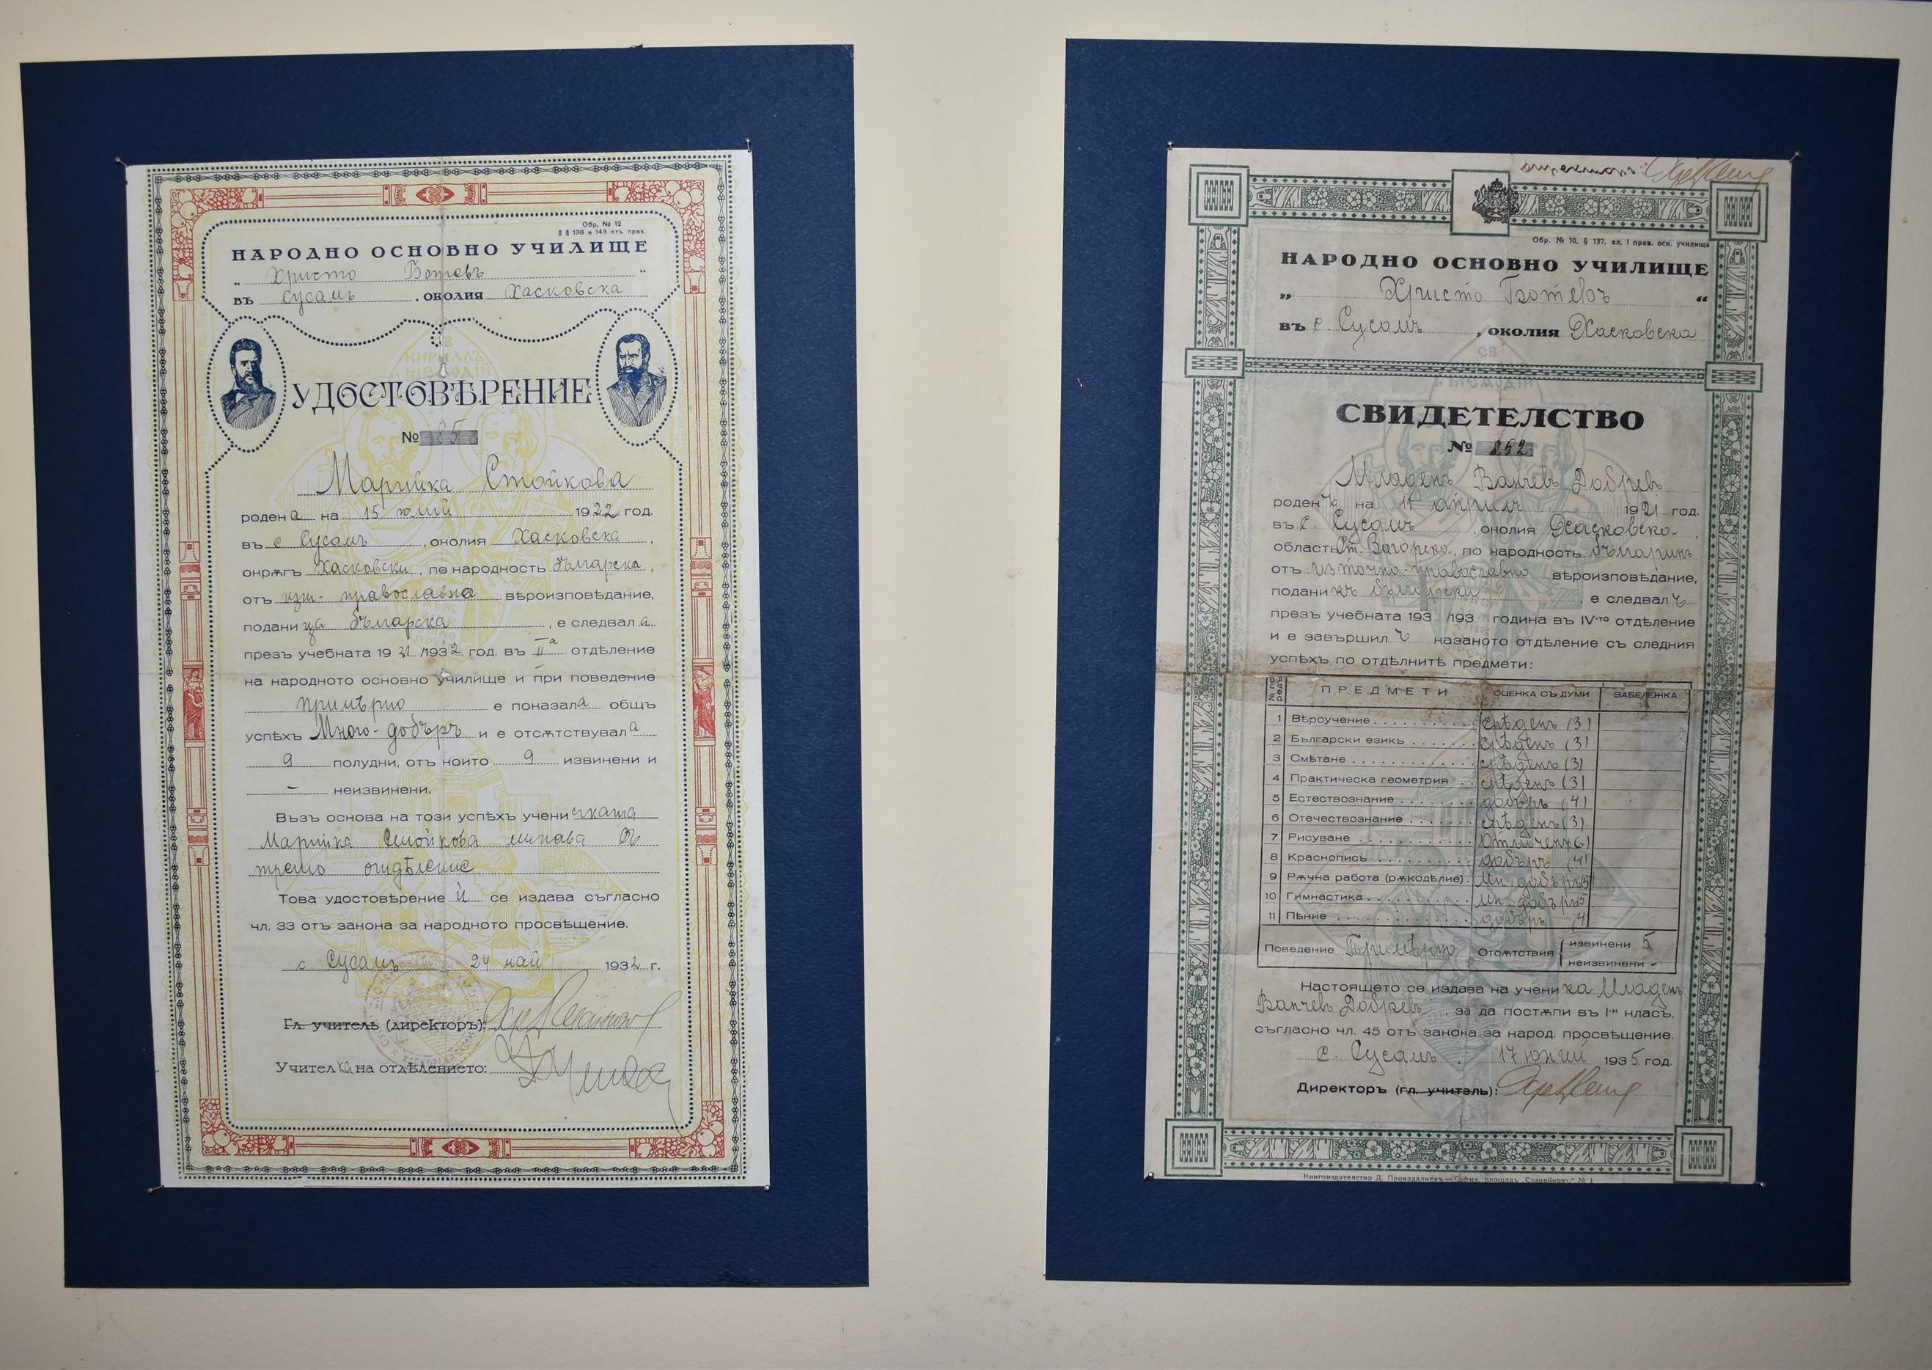 Обр. № 12
§ § 138 и 143 отъ прав.
НАРОДНО ОСНОВНО УЧИЛИЩЕ
„ Христо Ботевъ “
въ Сусамъ, околия Хасковска
УДОСТОВѢРЕНИЕ
№
Марийка Стойкова
родена на 15 юлий 1922 год.
въ с Сусамъ, околия Хасковска,
окрѫгъ Хасковски, по народность българска,
отъ изт.-православно вѣроизповѣдание,
поданица българска, е следвала
презъ учебната 1931/1932 год. въ IIа отдѣление
на народното основно училище и при поведение
примѣрно е показала общъ
успѣхъ Много-добъръ и е отсѫтствувала
9 полудни, отъ които 9 извинени и
- неизвинени.
Възъ основа на този успѣхъ ученичката
Марийка Стойкова минава въ
трето отдѣление
Това удостовѣрение ѝ се издава съгласно
чл. 33 отъ закона за народното просвѣщение.
с. Сусамъ 24 май 1932 г.
Гл. учитель (директоръ):
Учителка на отдѣлението:
Обр. № 10, § 137, ал. I прав. осн. училища
НАРОДНО ОСНОВНО УЧИЛИЩЕ
„ Христо Ботевъ “
въ с. Сусамъ, околия Хасковска
СВИДЕТЕЛСТВО
№ 252
Младенъ Ванчевъ Добревъ
роденъ на 11 априлъ 1921 год.
въ с. Сусамъ, околия Хасковска
область Ст. Загорска, по народность българинъ
отъ източно-православно вѣроизповѣдание,
поданикъ български, е следвалъ
презъ учебната 193 /193 година въ IV-то отдѣление
и е завършилъ казаното отдѣление съ следния
успѣхъ по отдѣлнитѣ предмети:
№ по редъ ПРЕДМЕТИ ОЦЕНКА СЪ ДУМИ ЗАБЕЛЕЖКА
1 Вѣроучение срѣденъ (3)
2 Български езикъ срѣденъ (3)
3 Смѣтане срѣденъ (3)
4 Практическа геометрия срѣденъ (3)
5 Естествознание добъръ (4)
6 Отечествознание срѣденъ (3)
7 Рисуване Отличенъ 6)
8 Краснопись добъръ (4)
9 Рѫчна работа (рѫкодѣлие) Мн. добъръ 5)
10 Гимнастика Мн. добъръ 5
11 Пѣние добъръ 4
Поведение Примѣрно Отсѫтствия извинени 5
неизвинени -
Настоящето се издава на ученика Младенъ
Ванчевъ Добревъ за да постѫпи въ I-и класъ.
съгласно чл. 45 отъ закона за народ. просвѣщение.
с. Сусамъ 17 юний 1935 год.
Директоръ (гл. учитель):
Книгоиздателство Д. Провадалиевъ — София, площадъ „Славейковъ“ № 1